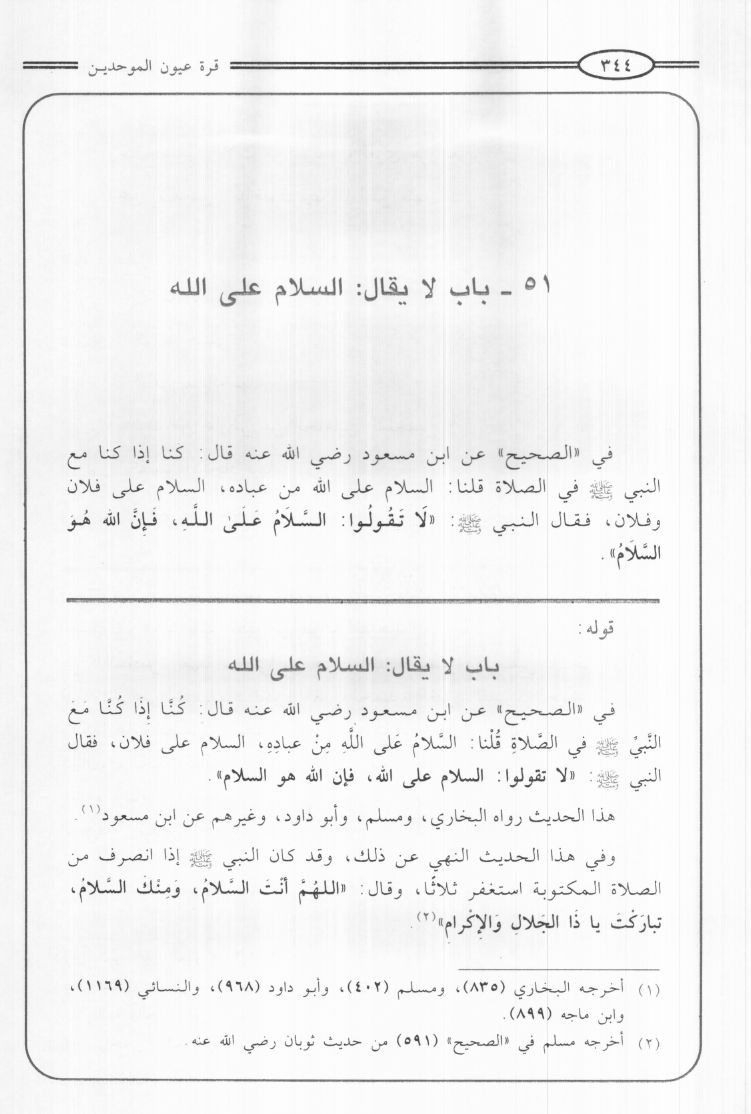 ٣٤٤
قرة عيون الموحدين
٥١ ـ باب لا يقال: السلام على الله
في «الصحيح» عن ابن مسعود رضي الله عنه قال: كنا إذا كنا مع
النبي ﷺ في الصلاة قلنا: السلام على الله من عباده، السلام على فلان
وفلان، فقال النبي ﷺ: «لَا تَقُولُوا: السَّلَامُ عَلَىٰ اللَّهِ، فَإِنَّ الله هُوَ
السَّلَامُ».
قوله:
باب لا يقال: السلام على الله
في «الصحيح» عن ابن مسعود رضي الله عنه قال: كُنَّا إذَا كُنَّا مَعَ
النَّبيِّ ﷺ في الصَّلاةِ قُلْنا: السَّلامُ عَلى اللَّهِ مِنْ عبادِهِ، السلام على فلان، فقال
النبي ﷺ: «لا تقولوا: السلام على الله، فإن الله هو السلام».
هذا الحديث رواه البخاري، ومسلم، وأبو داود، وغيرهم عن ابن مسعود(١).
وفي هذا الحديث النهي عن ذلك، وقد كان النبي ﷺ إذا انصرف من
الصلاة المكتوبة استغفر ثلاثًا، وقال: «اللهُمَّ أنْتَ السَّلامُ، وَمِنْكَ السَّلامُ،
تبارَكْتَ يا ذَا الجَلالِ وَالإكْرام»(٢).
(١) أخرجه البخاري (٨٣٥)، ومسلم (٤٠٢)، وأبو داود (٩٦٨)، والنسائي (١١٦٩)،
وابن ماجه (٨٩٩).
(٢) أخرجه مسلم في «الصحيح» (٥٩١) من حديث ثوبان رضي الله عنه.